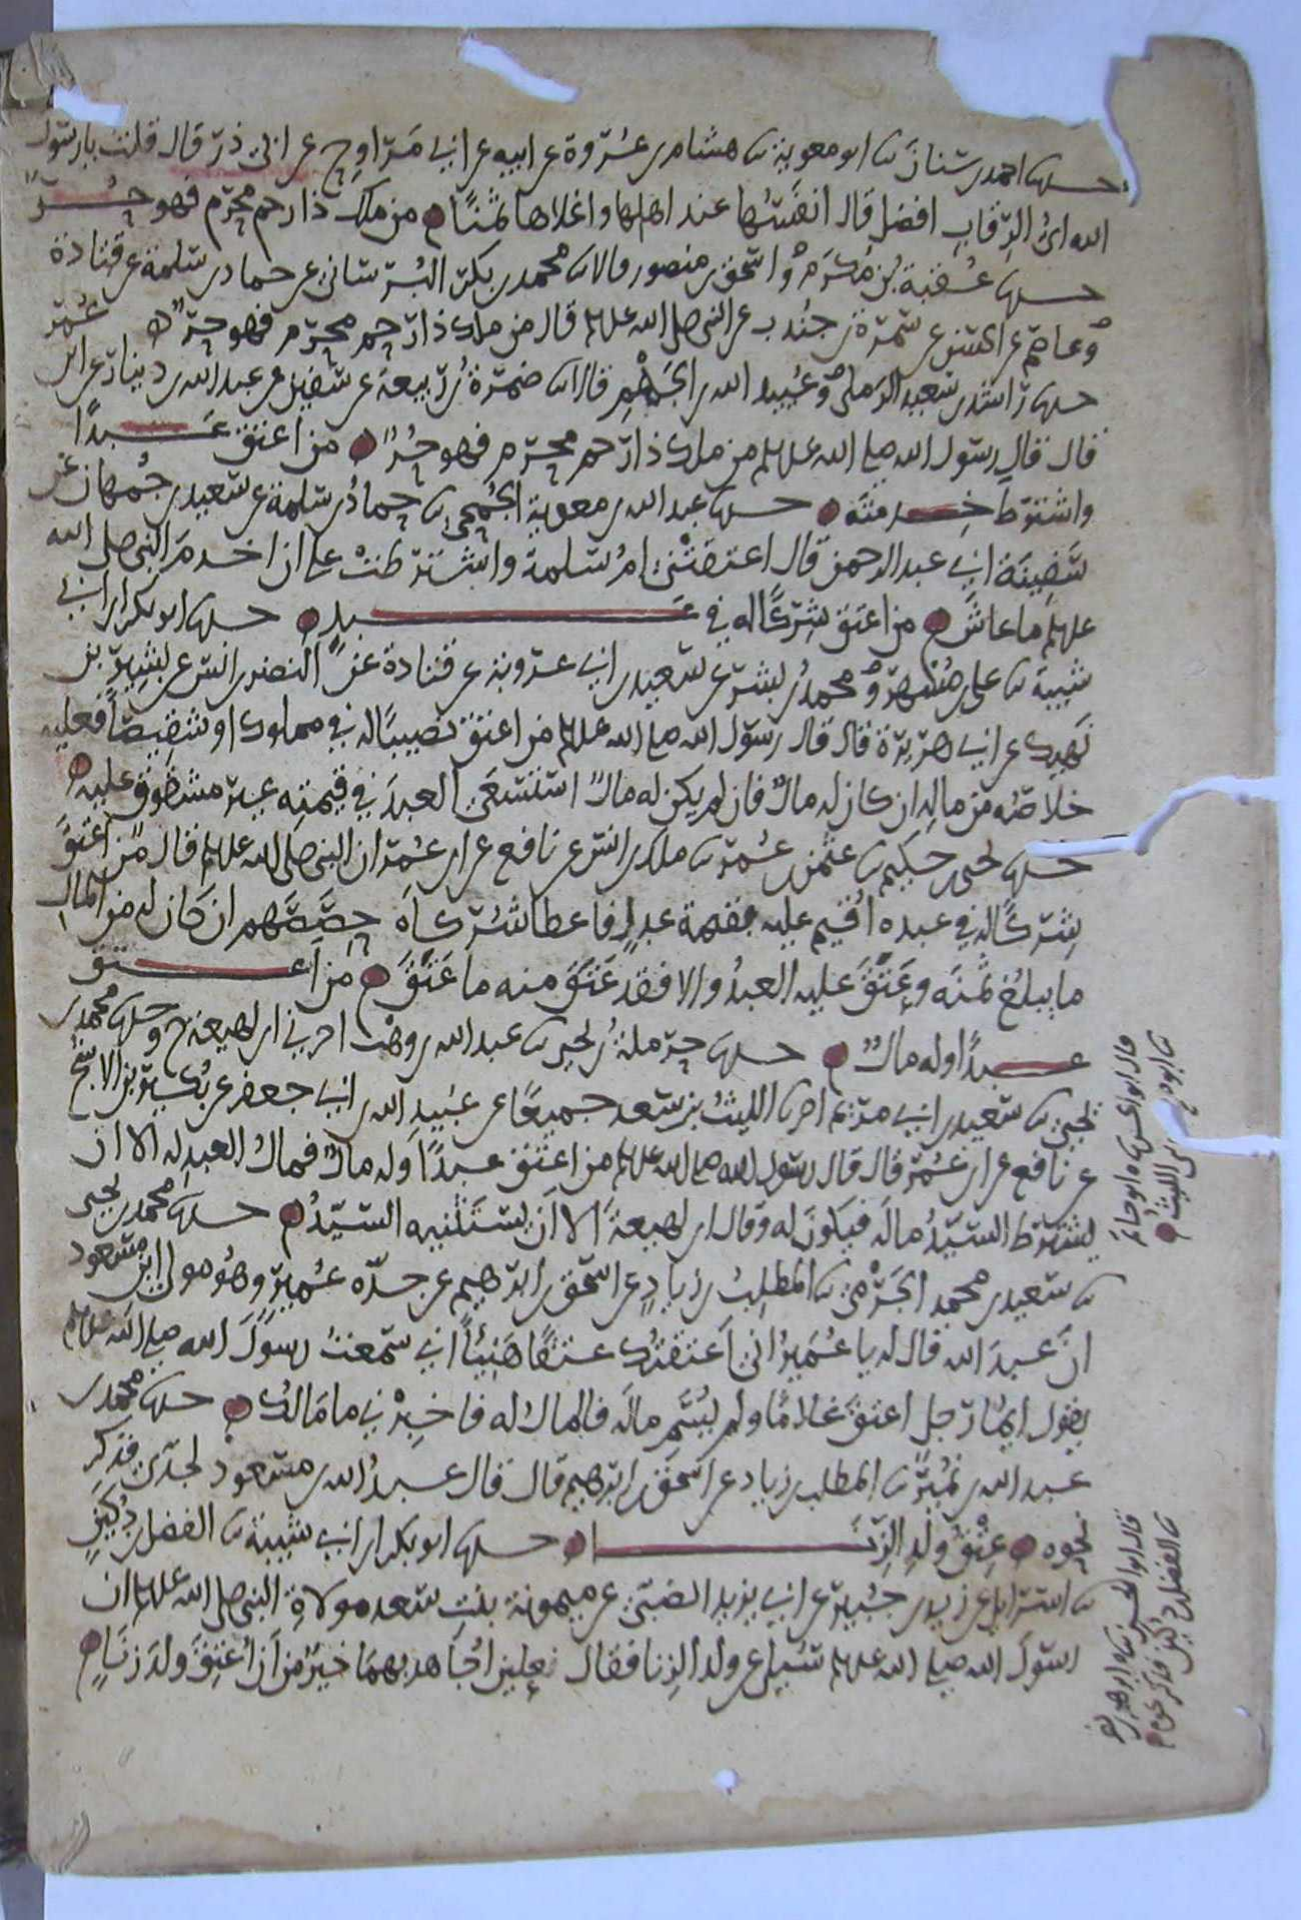 حدثنا احمد بن سنان نا ابو معوية نا هشام بن عُروة عن ابيه عن ابي مَراوح عن ابي ذر قال قلت يا رسول
الله ايُّ الرقابِ افضل قال انفسُها عند اهلها واغلاها ثمنًا من ملك ذا رحم محرم فهو حُرٌّ
حدثنا عُقبة بن مُكرَم واسحق بن منصور قالا نا محمد بن بكر البُرساني عن حماد بن سلمة عن قتادة
وعاصم عن الحسن عن سَمُرة بن جندب عن النبي صلى الله عليه وسلم قال من ملك ذا رَحِمٍ محرَمٍ فهو حر
حدثنا راشد بن سعيد الرملي وعُبيد الله بن الجَهْمِ قالا نا ضمرة بن رَبيعة عن سفين عن عبد الله بن دينار عن ابن عُمر
قال قال رسول الله صلى الله عليه وسلم من ملك ذا رَحم محرم فهو حُرٌّ من اعتق عَبدًا
واشترط خِدمته حدثنا عبد الله بن معوية الجُمَحي نا حمادُ بن سلمة عن سعيد بن جُمهان عن
سَفِينَة ابي عبد الرحمن قال اعتقتْني امُ سلمة واشترطتْ علي ان اخدمَ النبي صلى الله
عليه وسلم ما عاش من اعتق شِركًا له في عَبدٍ حدثنا ابو بكر بن ابي
شيبة نا علي بن مُسْهِر ومحمدُ بن بشر عن سعيد بن ابي عروبة عن قتادة عن النضر بن انس عن بشير بن
نَهيك عن ابي هريرة قال قال رسول الله صلى الله عليه وسلم من اعتق نصيبًا له في مملوك او شقيصًا فعليه
خلاصُه من مالِه ان كان له مالٌ فان لم يكن له مالٌ استُسعيَ العبدَ في قيمتِه غير مشقوق عليه
حدثنا يحيى بن حكيم نا عثمن بن عُمر نا ملك بن انس عن نافع عن ابن عُمر ان النبي صلى الله عليه وسلم قال من اعتقَ
شِركًا له في عبدٍ اُقيم عليه بقيمة عدلٍ فاعطا شُركاَه حِصصَهم ان كان له من المالِ
ما يبلغ ثمنَه وعَتَقَ عليه العبدُ والا فقد عَتَقَ منه ما عَتَقَ من اعتق
عبدًا وله مالٌ حدثنا حرملةُ بن يحيى نا عبد الله بن وهب اخبرني ابن لهيعة ح وحدثنا محمد بن
يحيى نا سعيد بن ابي مريم اخبرنا الليثُ بن سعد جميعًا عن عُبيدِ الله بن ابي جعفر عن بُكير بن الاشج
عن نافع عن ابن عُمر قال قال رسول الله صلى الله عليه وسلم من اعتق عبدًا وله مال فمالُ العبدِ له الا ان
يشترط السيّدُ مالَه فيكونَ له وقال ابن لهيعةَ الا ان يستثنيه السيّدُ حدثنا محمد بن يحيى
نا سعيد بن محمد الجَرْمي نا المطلبُ بن زيادٍ عن اسحق بن ابرهيم عن جدّه عُمير وهو مولى ابن مسعود
انَّ عبدَ الله قال له يا عُمَيرُ اني اَعتقتُك عتقًا هَنِيئًا اني سمعتُ رسولَ الله صلى الله عليه وسلم
يقول ايُّما رجل اعتقَ غلامًا ولم يُسَمِّ مالَه فالمالُ له فاخبِرْني ما مالُك حدثنا محمد بن
عبد الله بن نُمير نا المطلب بن زياد عن اسحق بن ابرهيم قال قال عبدُ الله بن مسعود لجدّي فذكر
نحوه عِتقُ ولدِ الزِّنَا حدثنا ابو بكر بن ابي شيبة نا الفضل بن دُكَينٍ
نا اسرايل عن زيد بن جُبير عن ابي يزيد الضبّي عن ميمونة بنتِ سعد مولاةِ النبي صلى الله عليه وسلم ان
رسولَ الله صلى الله عليه وسلم سُيل عن ولد الزنا فقال نعلين اُجاهد بهما خيرٌ من اَن اُعتِقَ ولدَ زِنًا
قال ابو الحسن نا ابو حاتم
نا ابو صالح نا الليث
قال ابو الحسن نا ابراهيم بن نصر
نا الفضل بن دكين فذكر نحوه